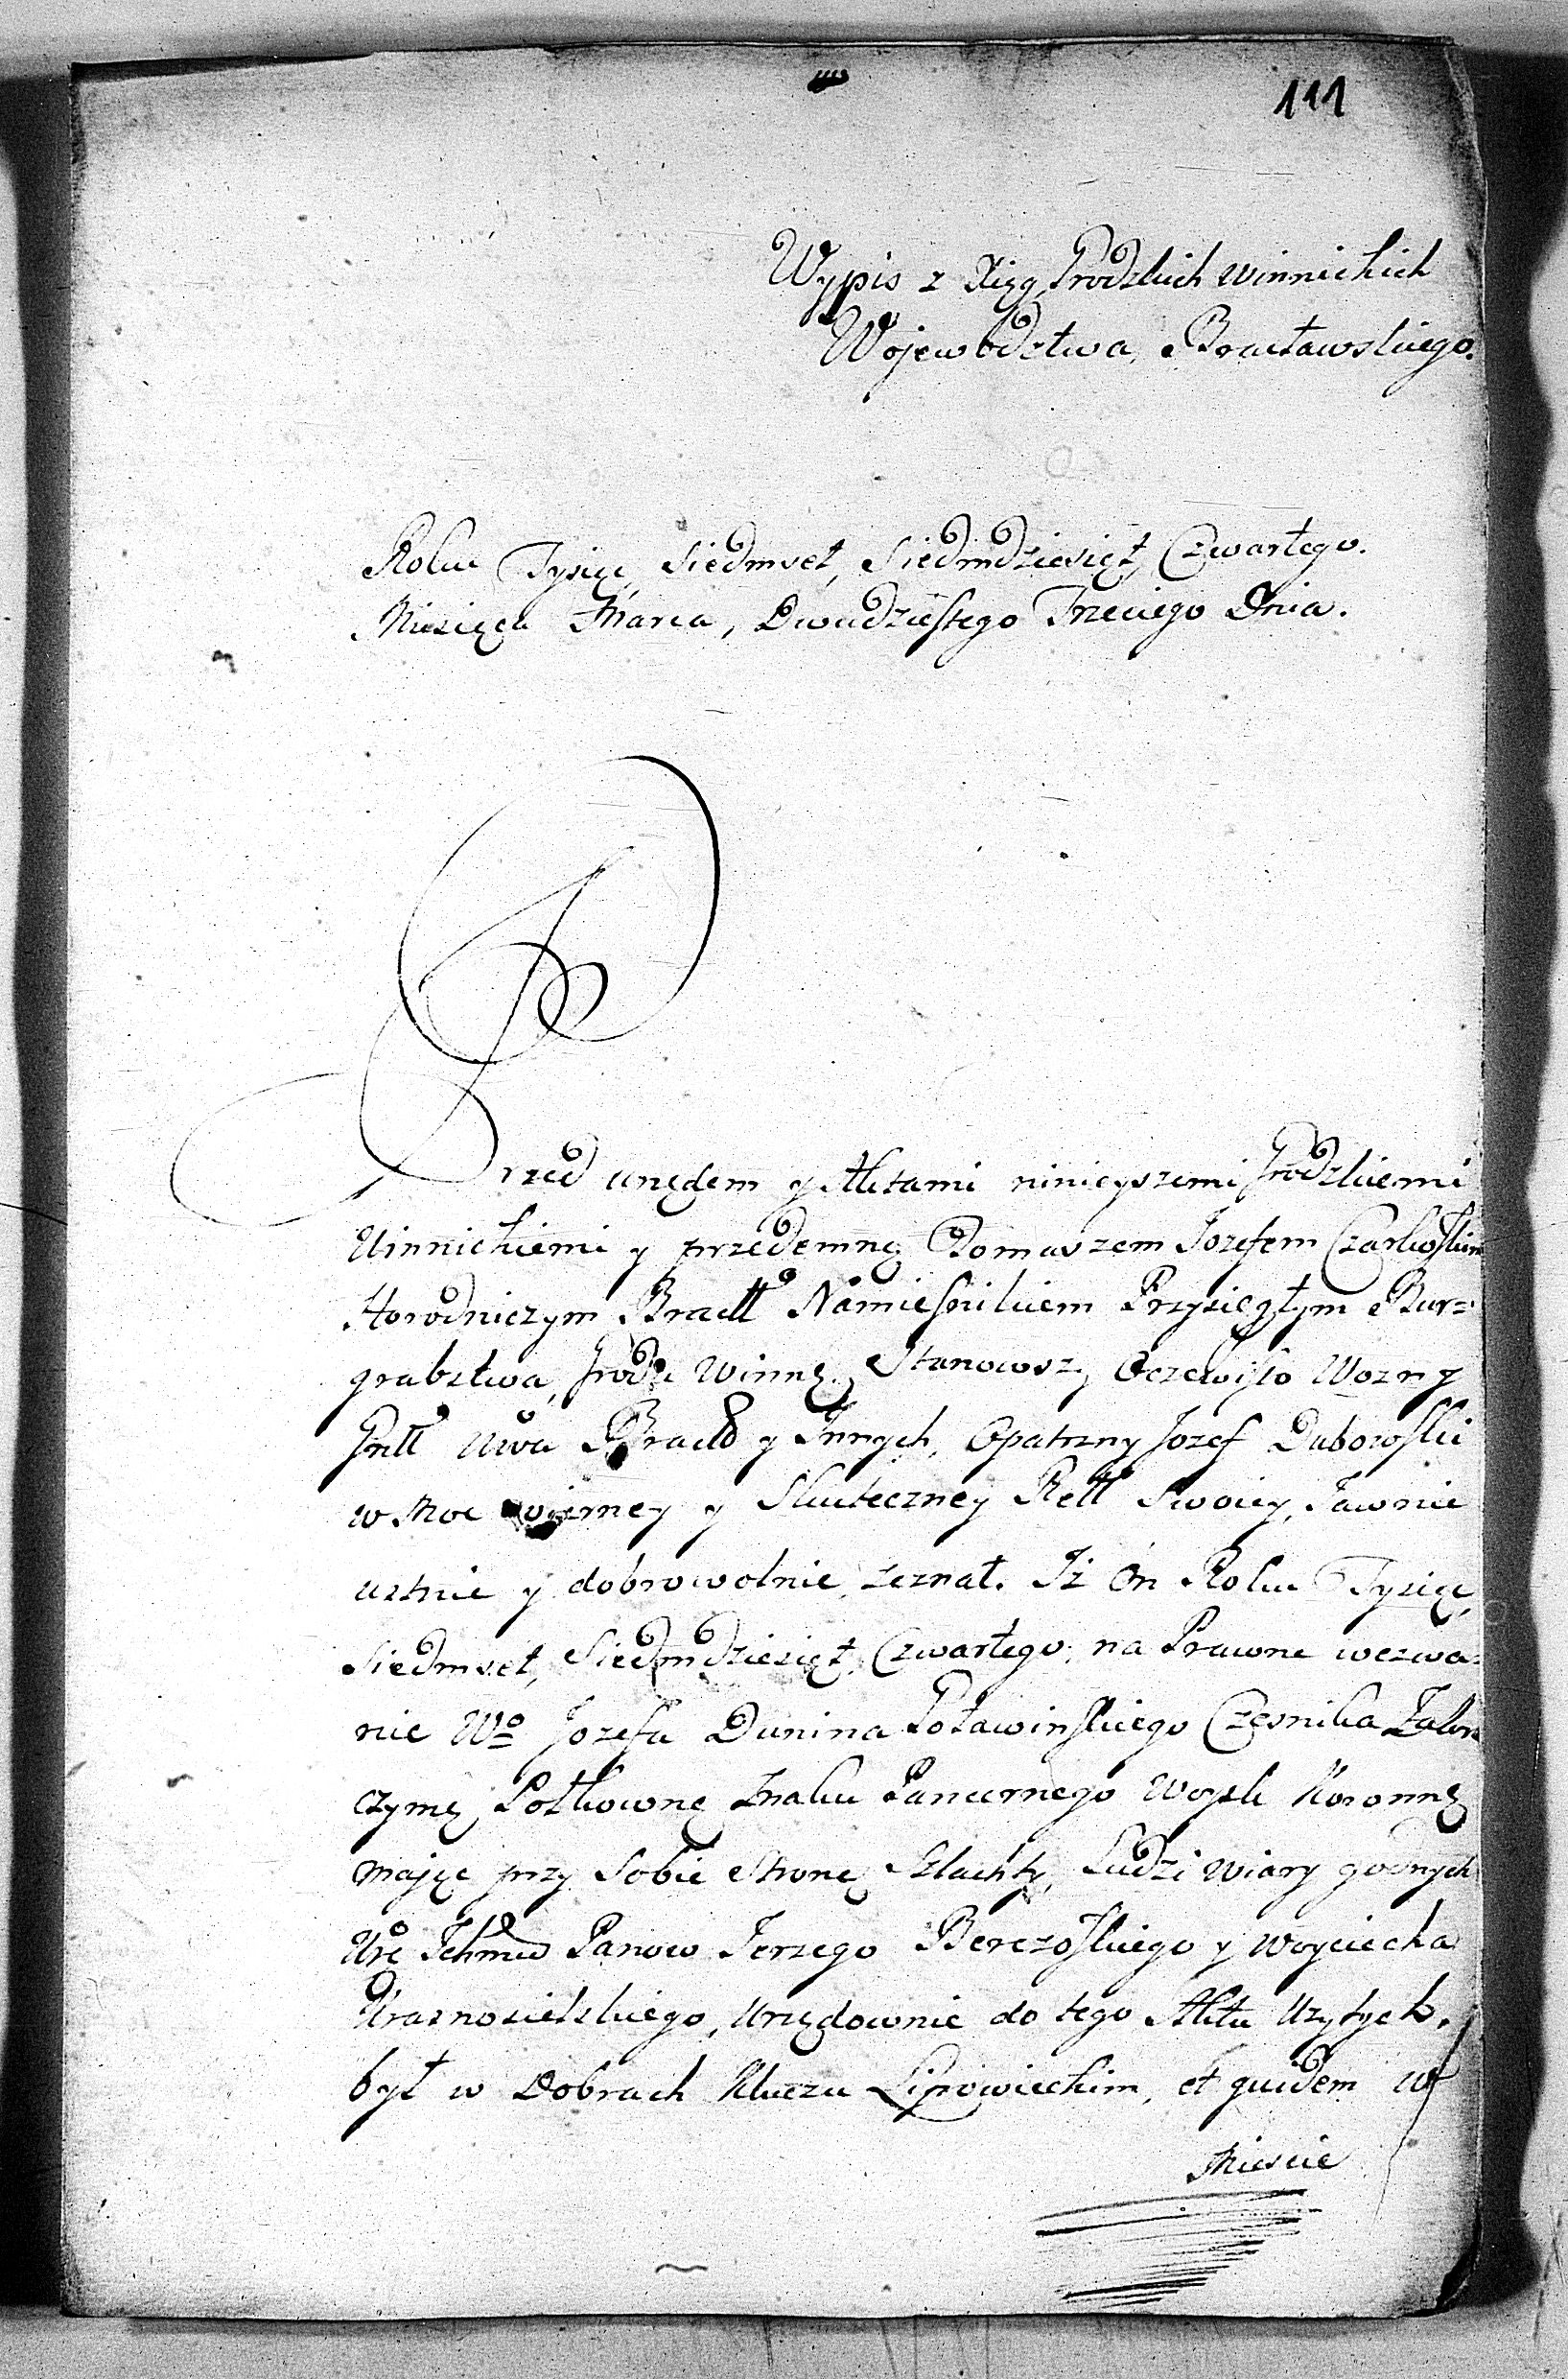 111
Wypis z Xięg Grodzkich Winnickich
Wojewodztwa Bracławskiego.
Roku Tysiąc Siedmset Siedmdziesiąt Czwartego.
Miesięca Marca, Dwudziestego Trzeciego Dnia.
Przed urzędem y Aktami ninieyszemi Grodzkiemi
Winnickiemi y przedemną Tomaszem Jozefem
Horodniczym Bractt Namiesnikiem Przysięgłym Bur=
grabstwa Grodu Winng Stanowszy Oczewisto Wozny
Gnłł Wwa Bracło y Innych, Opatrzny Jozef Dubowski
w Moc wierney y Skuteczney Rełł Swoiey, Jawnie
ustnie y dobrowolnie zeznał. Iż On Roku Tysiąc
Siedmset, Siedmdziesiąt Czwartego, na Prawne wezwa=
nie Wo Jozefa Dunina Poławinskiego Czesnika
czymę Połkowng Znaku Pancernego Woysk Koronng
mając przy Sobie Stronę Szlachty, Ludzi wiary godnych
Uro Panow Jerzego Berezoskiego y Woyciecha
Krasnosielskiego, Urzędownie do tego Aktu Uzytych,
był w Dobrach Kluczu Lipowieckim, et quidem w
Miescie